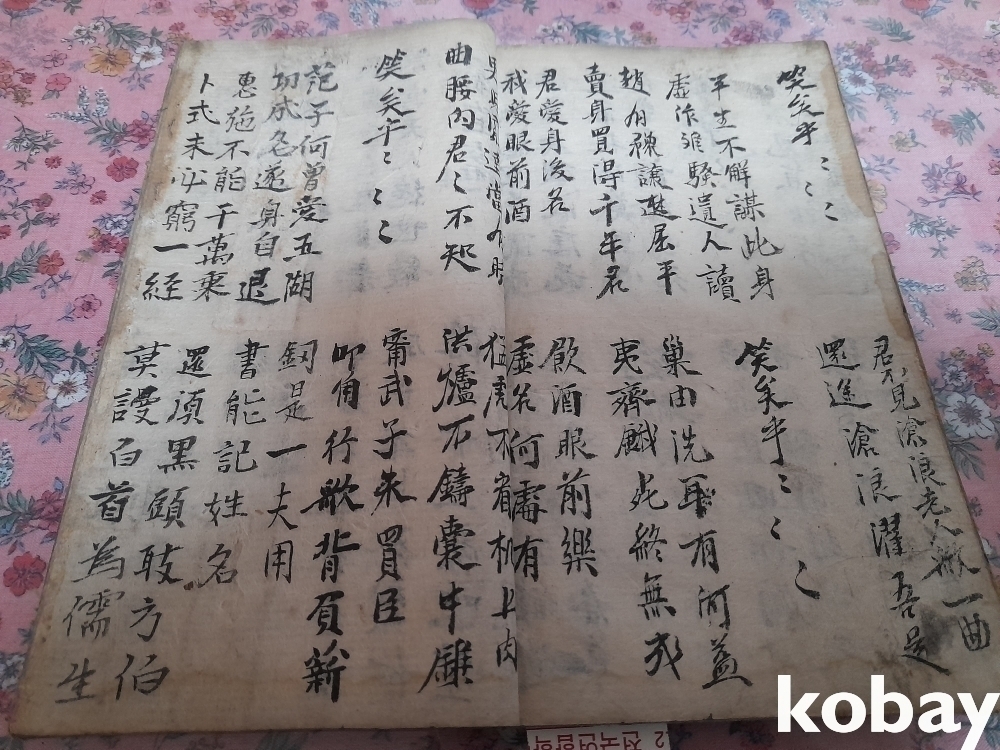 笑矣乎〻〻〻
君不見滄浪老人歌一曲
還道滄浪濯吾足
平生不解謀此身
虛作離騷遣人讀
笑矣乎〻〻〻
趙有豫讓楚屈平
賣身買得千年名
巢由洗耳有何益
夷齊餓死終無成
君愛身後名
我愛眼前酒
飮酒眼前樂
虛名何處有
男兒窮通當有時
曲腰向君〻不知
猛虎不看机上肉
洪爐不鑄囊中錐
笑矣乎〻〻〻
甯武子朱買臣
叩角行歌背負薪
范子何曾愛五湖
功成名遂身自退
釼是一夫用
書能記姓名
惠施不能千萬乘
卜式未必窮一經
還須黑頭取方伯
莫謾白首為儒生
2 전국연합학
kobay